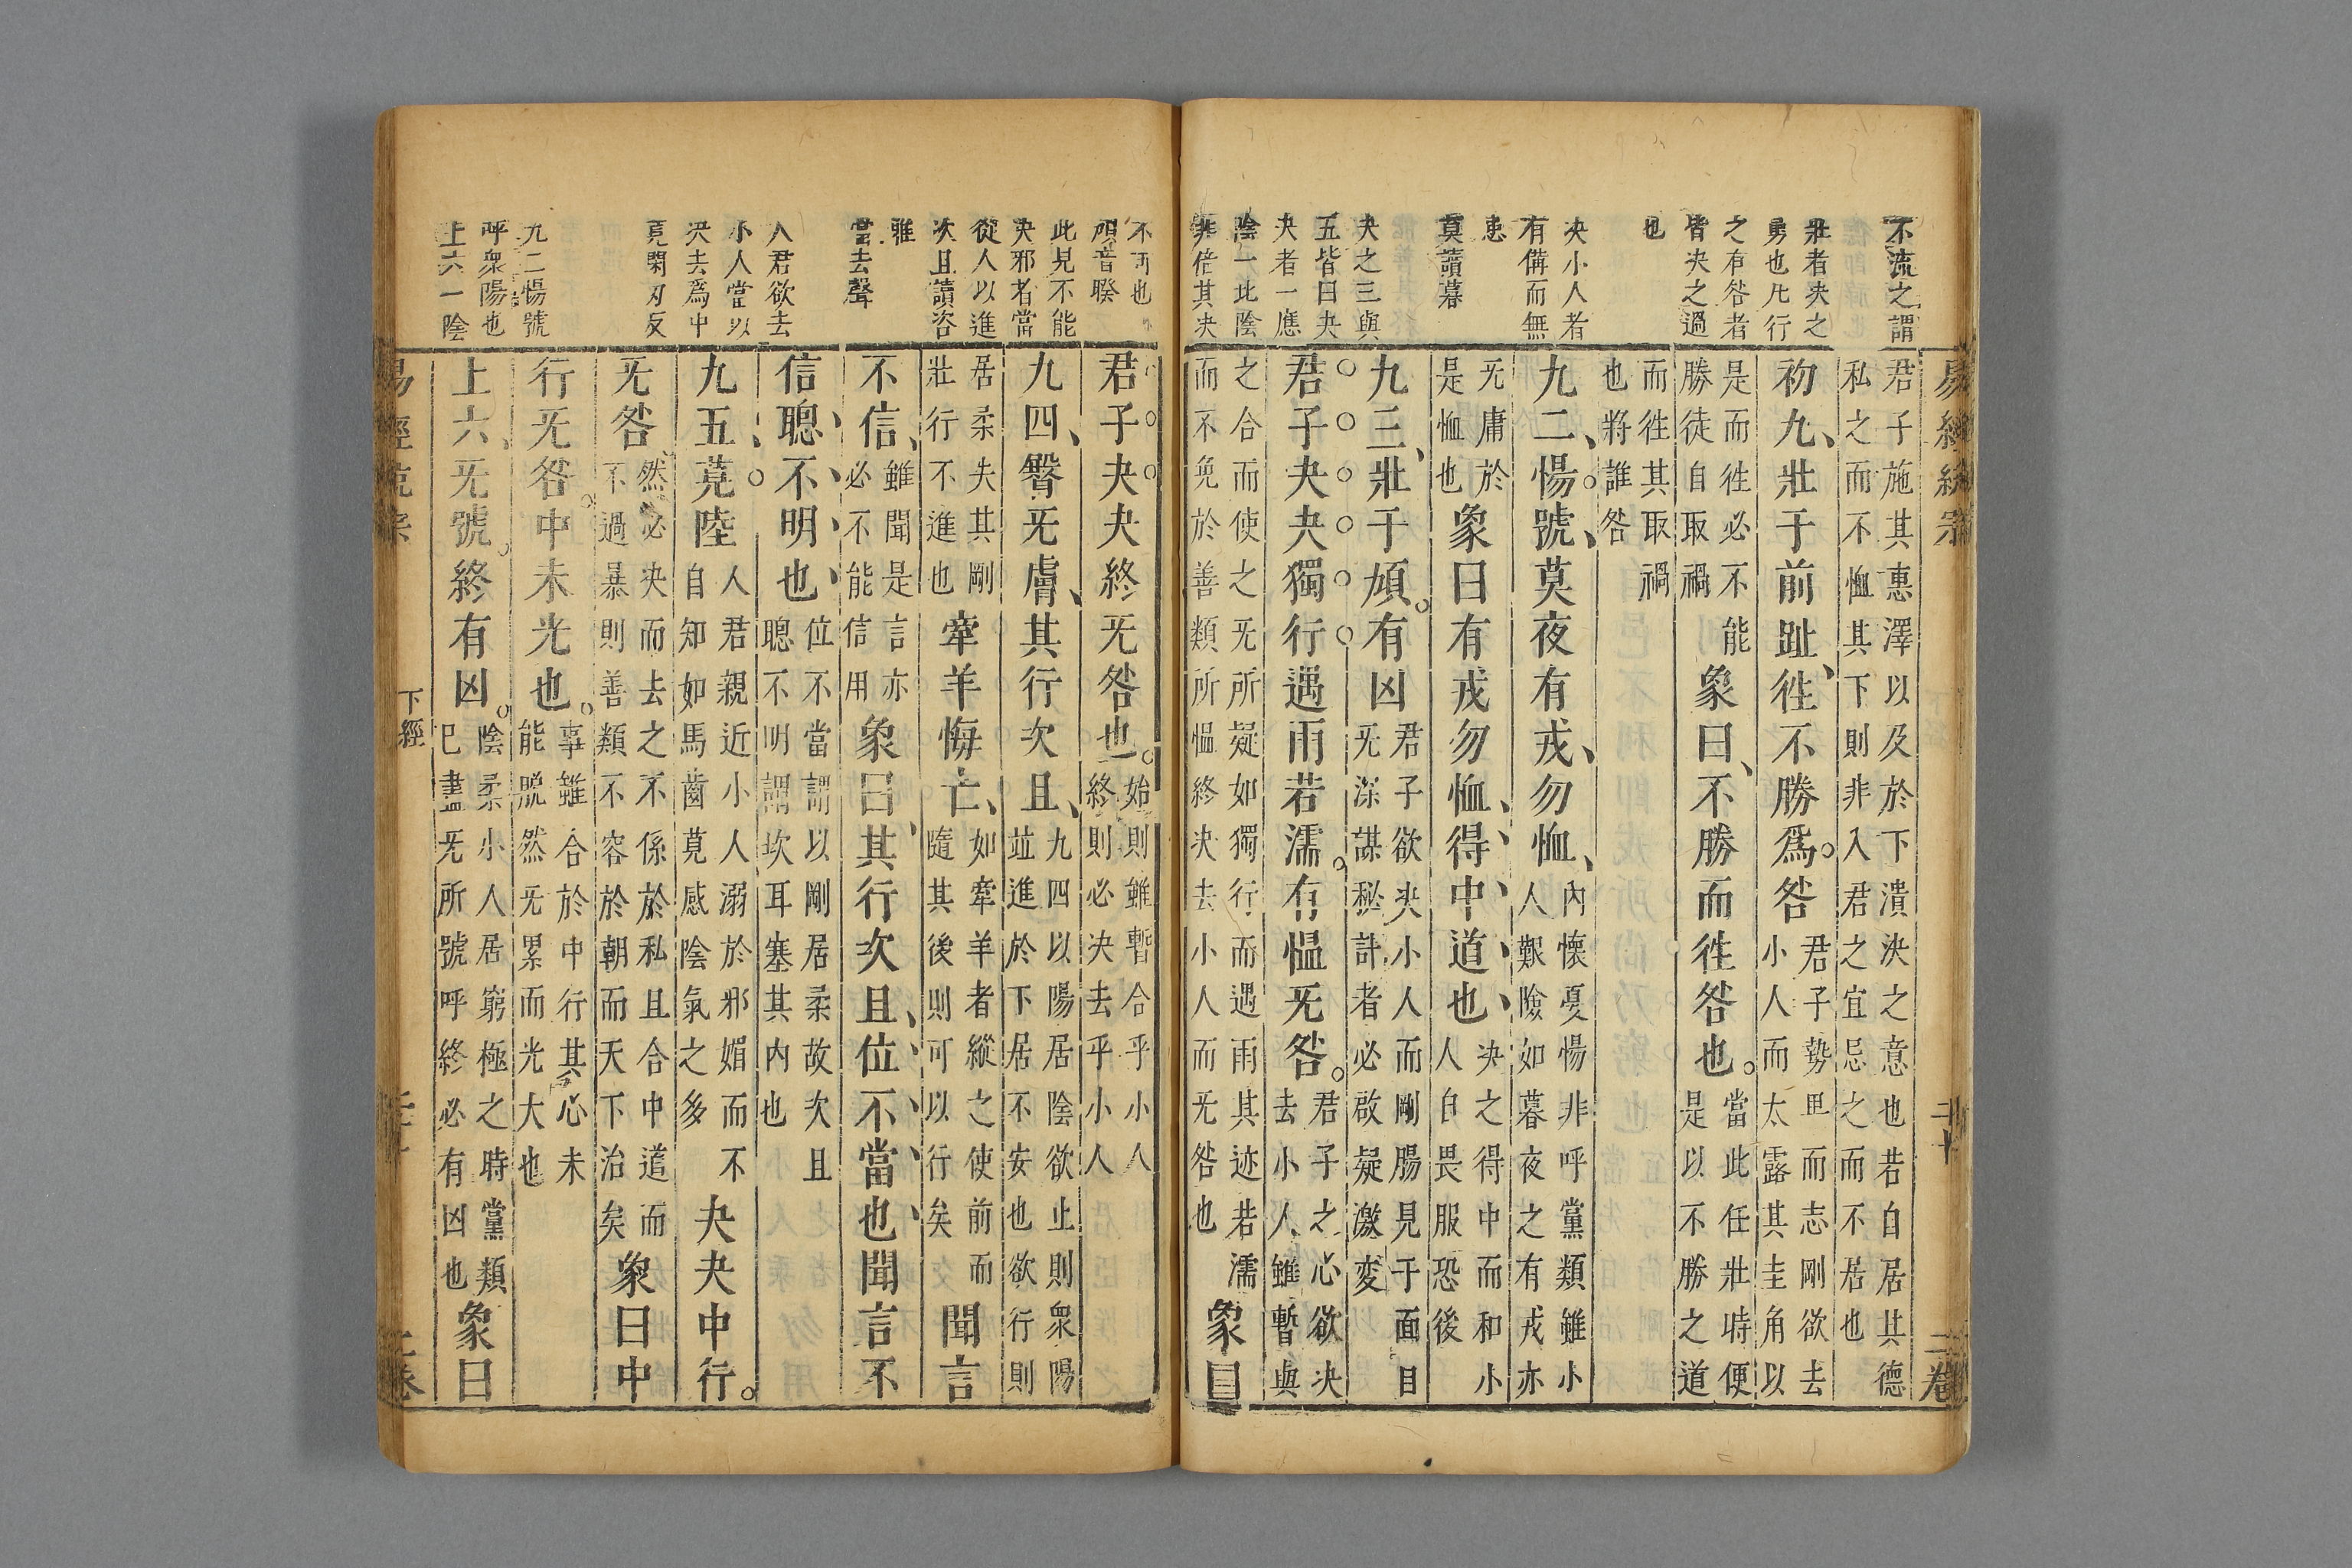 不流之謂
壯者夬之
勇也凡行
之有咎者
皆決之過
也
決小人者
有備而無
患
莫讀暮
夬之三與
五皆曰夬
夬者一應
陰一比陰
非倍其決
易經統宗
二卷
君子施其惠澤以及於下潰決之意也若自居其德
私之而不恤其下則非入君之宜忌之而不居也
初九、壯于前趾、徃不勝爲。咎
君子勢
而志剛欲去
小人而太露其圭角以
是而徃必不能
勝徒自取禍
象曰、不勝而徃咎也。
當此任壯時便
是以不勝之道
而徃其取禍
也將誰咎
九二、惕。號、莫夜有戎、勿恤、
內懷憂惕非呼黨類雖小
人艱險如暮夜之有戎亦
无庸於
是恤也
象曰有戎勿恤、得中道也、
決之得中而和小
人自畏服恐後
九三、壯于頄。有凶
君子欲決小人而剛腸見于面目
无深謀秘計者必啟疑激変
君子夬夬獨行遇雨若濡。有慍无咎。
君子之心欲決
去小人雖暫與
之合而使之无所疑如獨行而遇雨其迹若濡
而不免於善類所慍終決去小人而无咎也
象曰
不可也
頄音騤
此見不能
決邪者當
從人以進
次且讀咨
雎
當去聲
人君欲去
小人當以
決去爲中
莧閑刃反
九二惕號
呼衆陽也
上六一陰
君子夬夬終无咎也。
始則雖暫合乎小人
終則必決去乎小人
九四、臀无膚、其行次且、
九四以陽居陰欲止則衆陽
竝進於下居不安也欲行則
居柔失其剛
壯行不進也
牽羊悔亡、
如牽羊者縱之使前而
隨其後則可以行矣
聞言
不信、
雖聞是言亦
必不能信用
象曰、其行次且、位不當也聞言不
信聰、不明也
位不當謂以剛居柔故次且
聰不明謂坎耳塞其內也
九五、莧。陸
人君親近小人溺於邪媚而不
自知如馬齒莧感陰氣之多
夬夬中行。
无咎、
然必決而去之不係於私且合中道而
不過暴則善類不容於朝而天下治矣
象曰中
行无咎。中未光也。
事雖合於中行其心未
能脫然无累而光大也
上六、无號。終有凶。
陰柔小人居窮極之時黨類
已盡无所號呼終必有凶也
象曰
下經